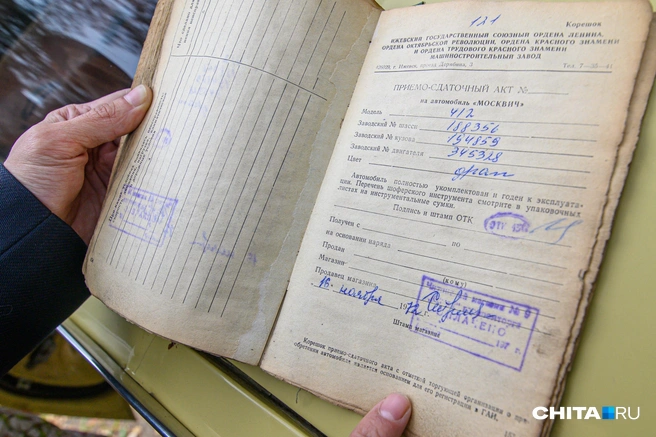 121
Корешок
ИЖЕВСКИЙ ГОСУДАРСТВЕННЫЙ СОЮЗНЫЙ ОРДЕНА ЛЕНИНА,
ОРДЕНА ОКТЯБРЬСКОЙ РЕВОЛЮЦИИ, ОРДЕНА КРАСНОГО ЗНАМЕНИ
И ОРДЕНА ТРУДОВОГО КРАСНОГО ЗНАМЕНИ
МАШИНОСТРОИТЕЛЬНЫЙ ЗАВОД
г. Ижевск, проезд Дерябина, 3
ПРИЕМО-СДАТОЧНЫЙ АКТ №
на автомобиль «МОСКВИЧ»
Модель 412
Заводской № шасси 188356
Заводской № кузова 194859
Заводской № двигателя 345328
Цвет
Автомобиль полностью укомплектован и годен к эксплуата-
ции. Перечень шоферского инструмента смотрите в упаковочных
листах на инструментальные сумки.
Подпись и штамп ОТК
ОТК
Получен с по
на основании наряда
Продан
(кому)
Магазин
Продавец магазина
16 ноября 197
Штамп магазина
№ 9
197 г.
Корешок приемо-сдаточного акта с отметкой торгующей организации о при-
обретении автомобиля является основанием для его регистрации в ГАИ.
CHITA.RU